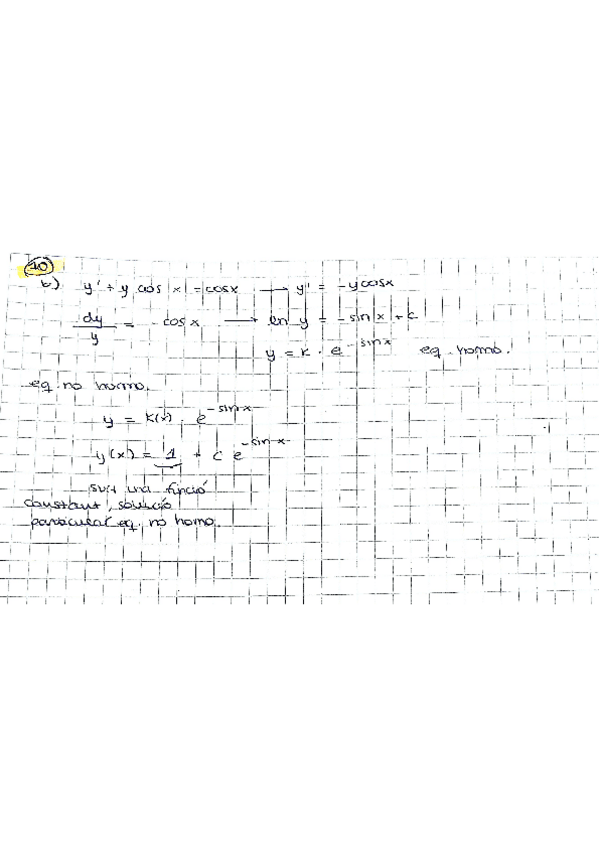 10
b) y' + y cos x = cosx → y' = -ycosx
dy/y = -cos x → ln y = -sin x + c
y = K · e^-sinx eq. homo.
eq. no homo.
y = K(x) · e^-sinx
y(x) = 1 + c e^-sinx
una funció
constant, solució
particular eq. no homo.